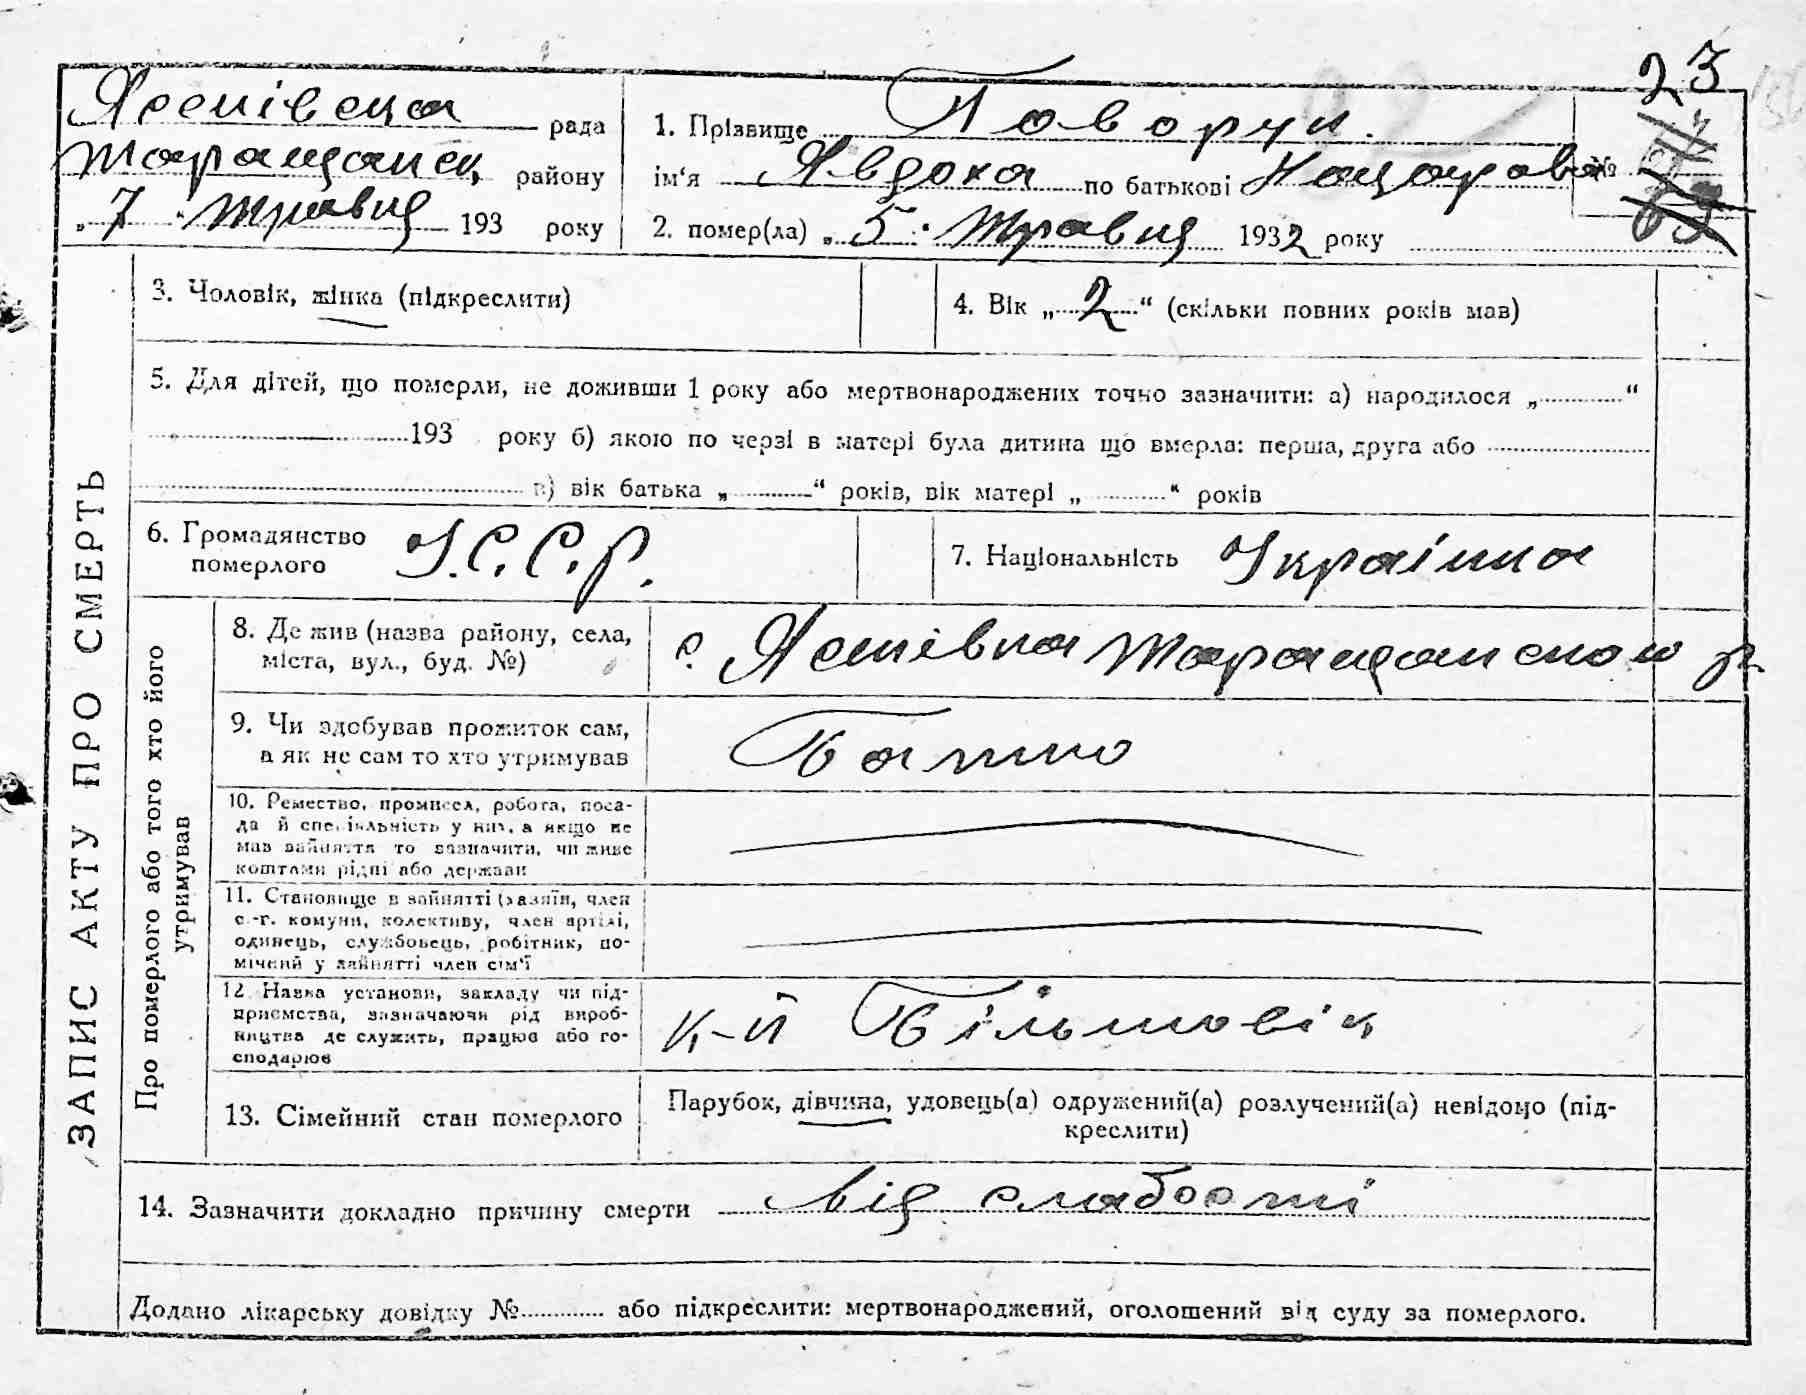 23
Ясенівська рада
Таращанськ. району
„7“ травня 193 року
1. Прізвище Говорун.
ім‘я Явдоха по батькові Назарова №
2. помер(ла) „5“ травня 1932 року
ЗАПИС АКТУ ПРО СМЕРТЬ
3. Чоловік, жінка (підкреслити)
4. Вік „2“ (скільки повних років мав)
5. Для дітей, що померли, не доживши 1 року або мертвонароджених точно зазначити: а) народилося „ “
193 року б) якою по черзі в матері була дитина що вмерла: перша, друга або
в) вік батька „ “ років, вік матері „ “ років
6. Громадянство
померлого
У.С.С.Р.
7. Національність Українка
Про померлого або того хто його
утримував
8. Де жив (назва району, села,
міста, вул., буд. №)
с. Ясенівка Таращанського р.
9. Чи здобував прожиток сам,
а як не сам то хто утримував
Батько
10. Ремество, промисел, робота, поса-
да й спеціяльність у них, а якщо не
мав зайняття то зазначити, чи живе
коштами рідні або держави
11. Становище в зайнятті (хазяїн, член
с.-г. комуни, колективу, член артілі,
одинець, службовець, робітник, по-
мічний у зайнятті член сім‘ї
12. Назва установи, закладу чи під-
приємства, зазначаючи рід вироб-
ництва де служить, працює або го-
сподарює
к-п Більшовік
13. Сімейний стан померлого
Парубок, дівчина, удовець(а) одружений(а) розлучений(а) невідомо (під-
креслити)
14. Зазначити докладно причину смерти від слабості
Додано лікарську довідку № або підкреслити: мертвонароджений, оголошений від суду за померлого.